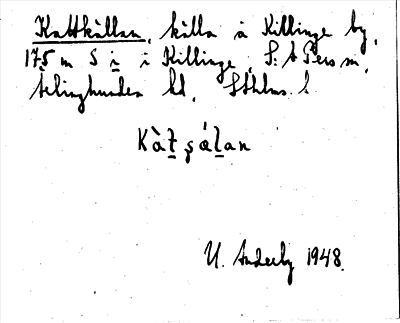 Kattkällan, källa å Killinge by,
175 m S i i Killinge, S:t Pers sn,
Ærlinghundra hd, Sthlms l
Kàtsálan
U. Anderby 1948.